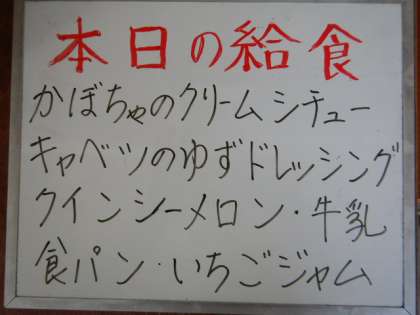 本日の給食
かぼちゃのクリームシチュー
キャベツのゆずドレッシング
クインシーメロン・牛乳
食パン・いちごジャム